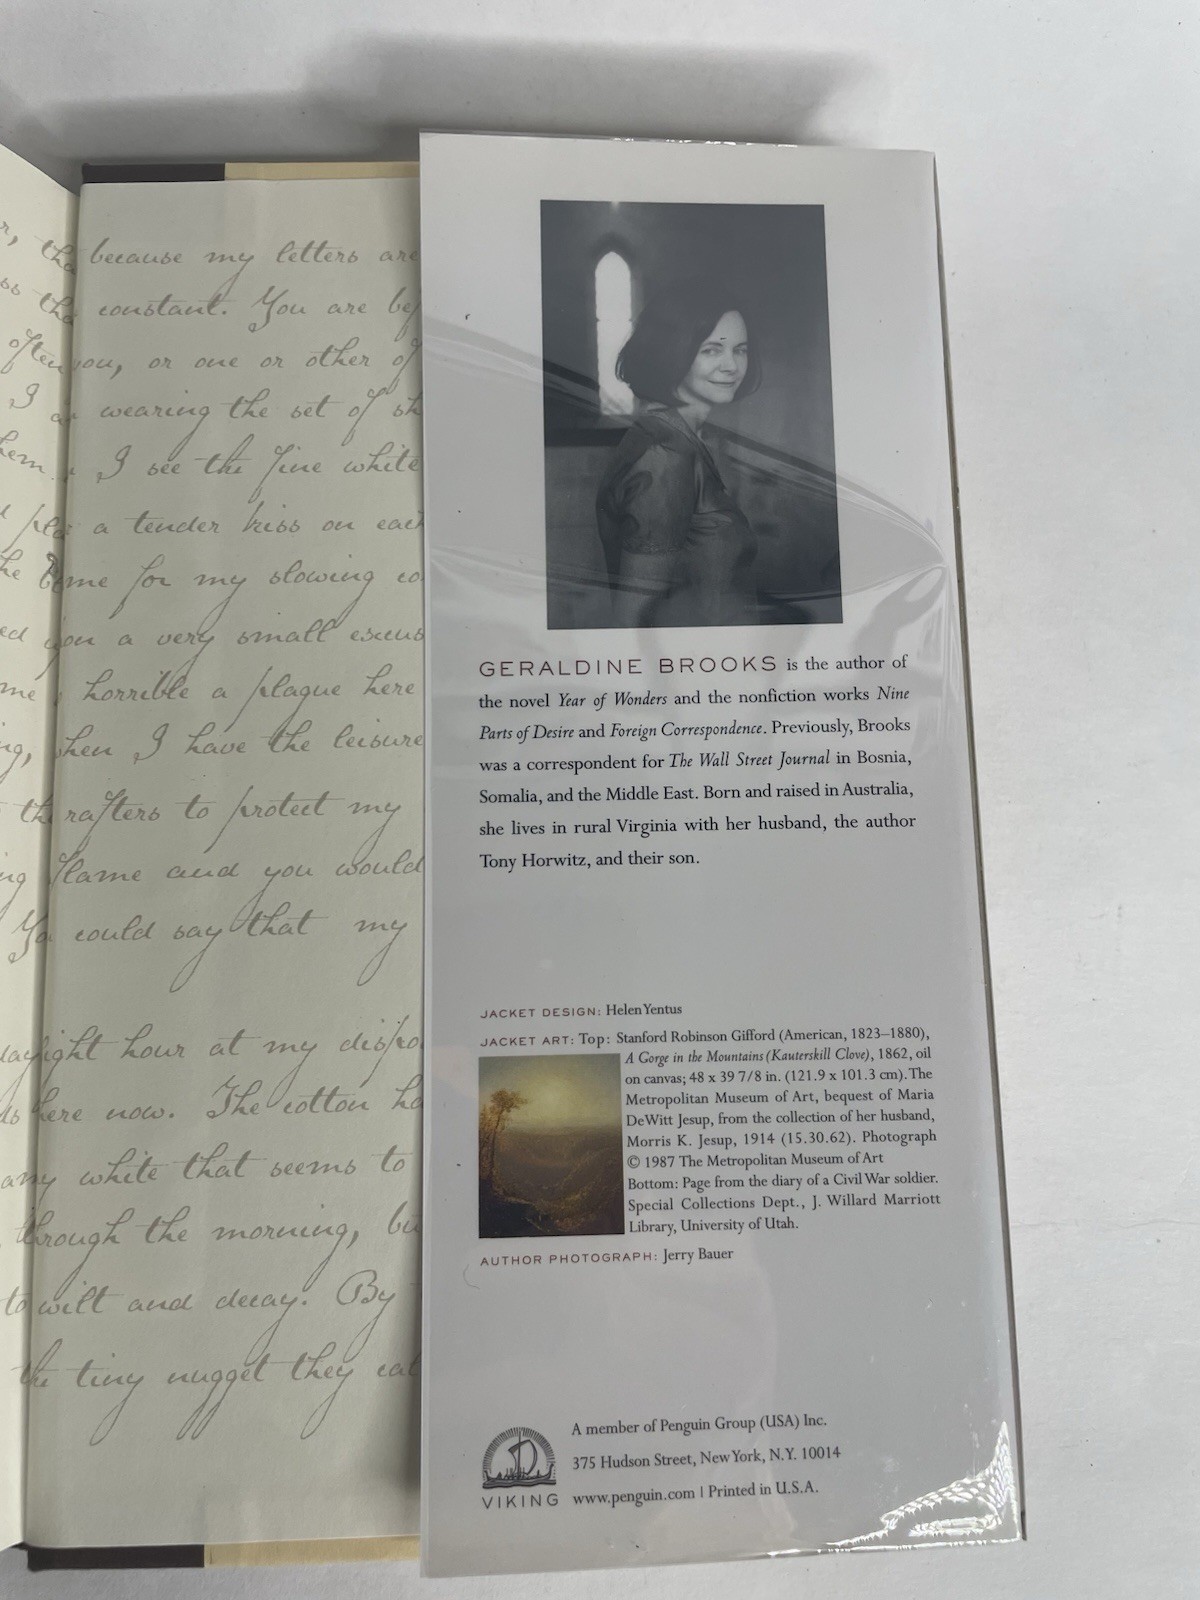 because my letters are
constant. You are
you, or one or other of
wearing the set of
I see the fine white
a tender kiss on each
time for my slowing
you a very small
horrible a plague here
when I have the leisure
rafters to protect my
flame and you would
could say that my
daylight hour at my
here now. The cotton
white that seems to
through the morning,
to wilt and decay. By
the tiny nugget they
GERALDINE BROOKS is the author of
the novel Year of Wonders and the nonfiction works Nine
Parts of Desire and Foreign Correspondence. Previously, Brooks
was a correspondent for The Wall Street Journal in Bosnia,
Somalia, and the Middle East. Born and raised in Australia,
she lives in rural Virginia with her husband, the author
Tony Horwitz, and their son.
JACKET DESIGN: Helen Yentus
JACKET ART: Top: Stanford Robinson Gifford (American, 1823–1880),
A Gorge in the Mountains (Kauterskill Clove), 1862, oil
on canvas; 48 x 39 7/8 in. (121.9 x 101.3 cm). The
Metropolitan Museum of Art, bequest of Maria
DeWitt Jesup, from the collection of her husband,
Morris K. Jesup, 1914 (15.30.62). Photograph
© 1987 The Metropolitan Museum of Art
Bottom: Page from the diary of a Civil War soldier.
Special Collections Dept., J. Willard Marriott
Library, University of Utah.
AUTHOR PHOTOGRAPH: Jerry Bauer
A member of Penguin Group (USA) Inc.
375 Hudson Street, New York, N.Y. 10014
VIKING www.penguin.com | Printed in U.S.A.